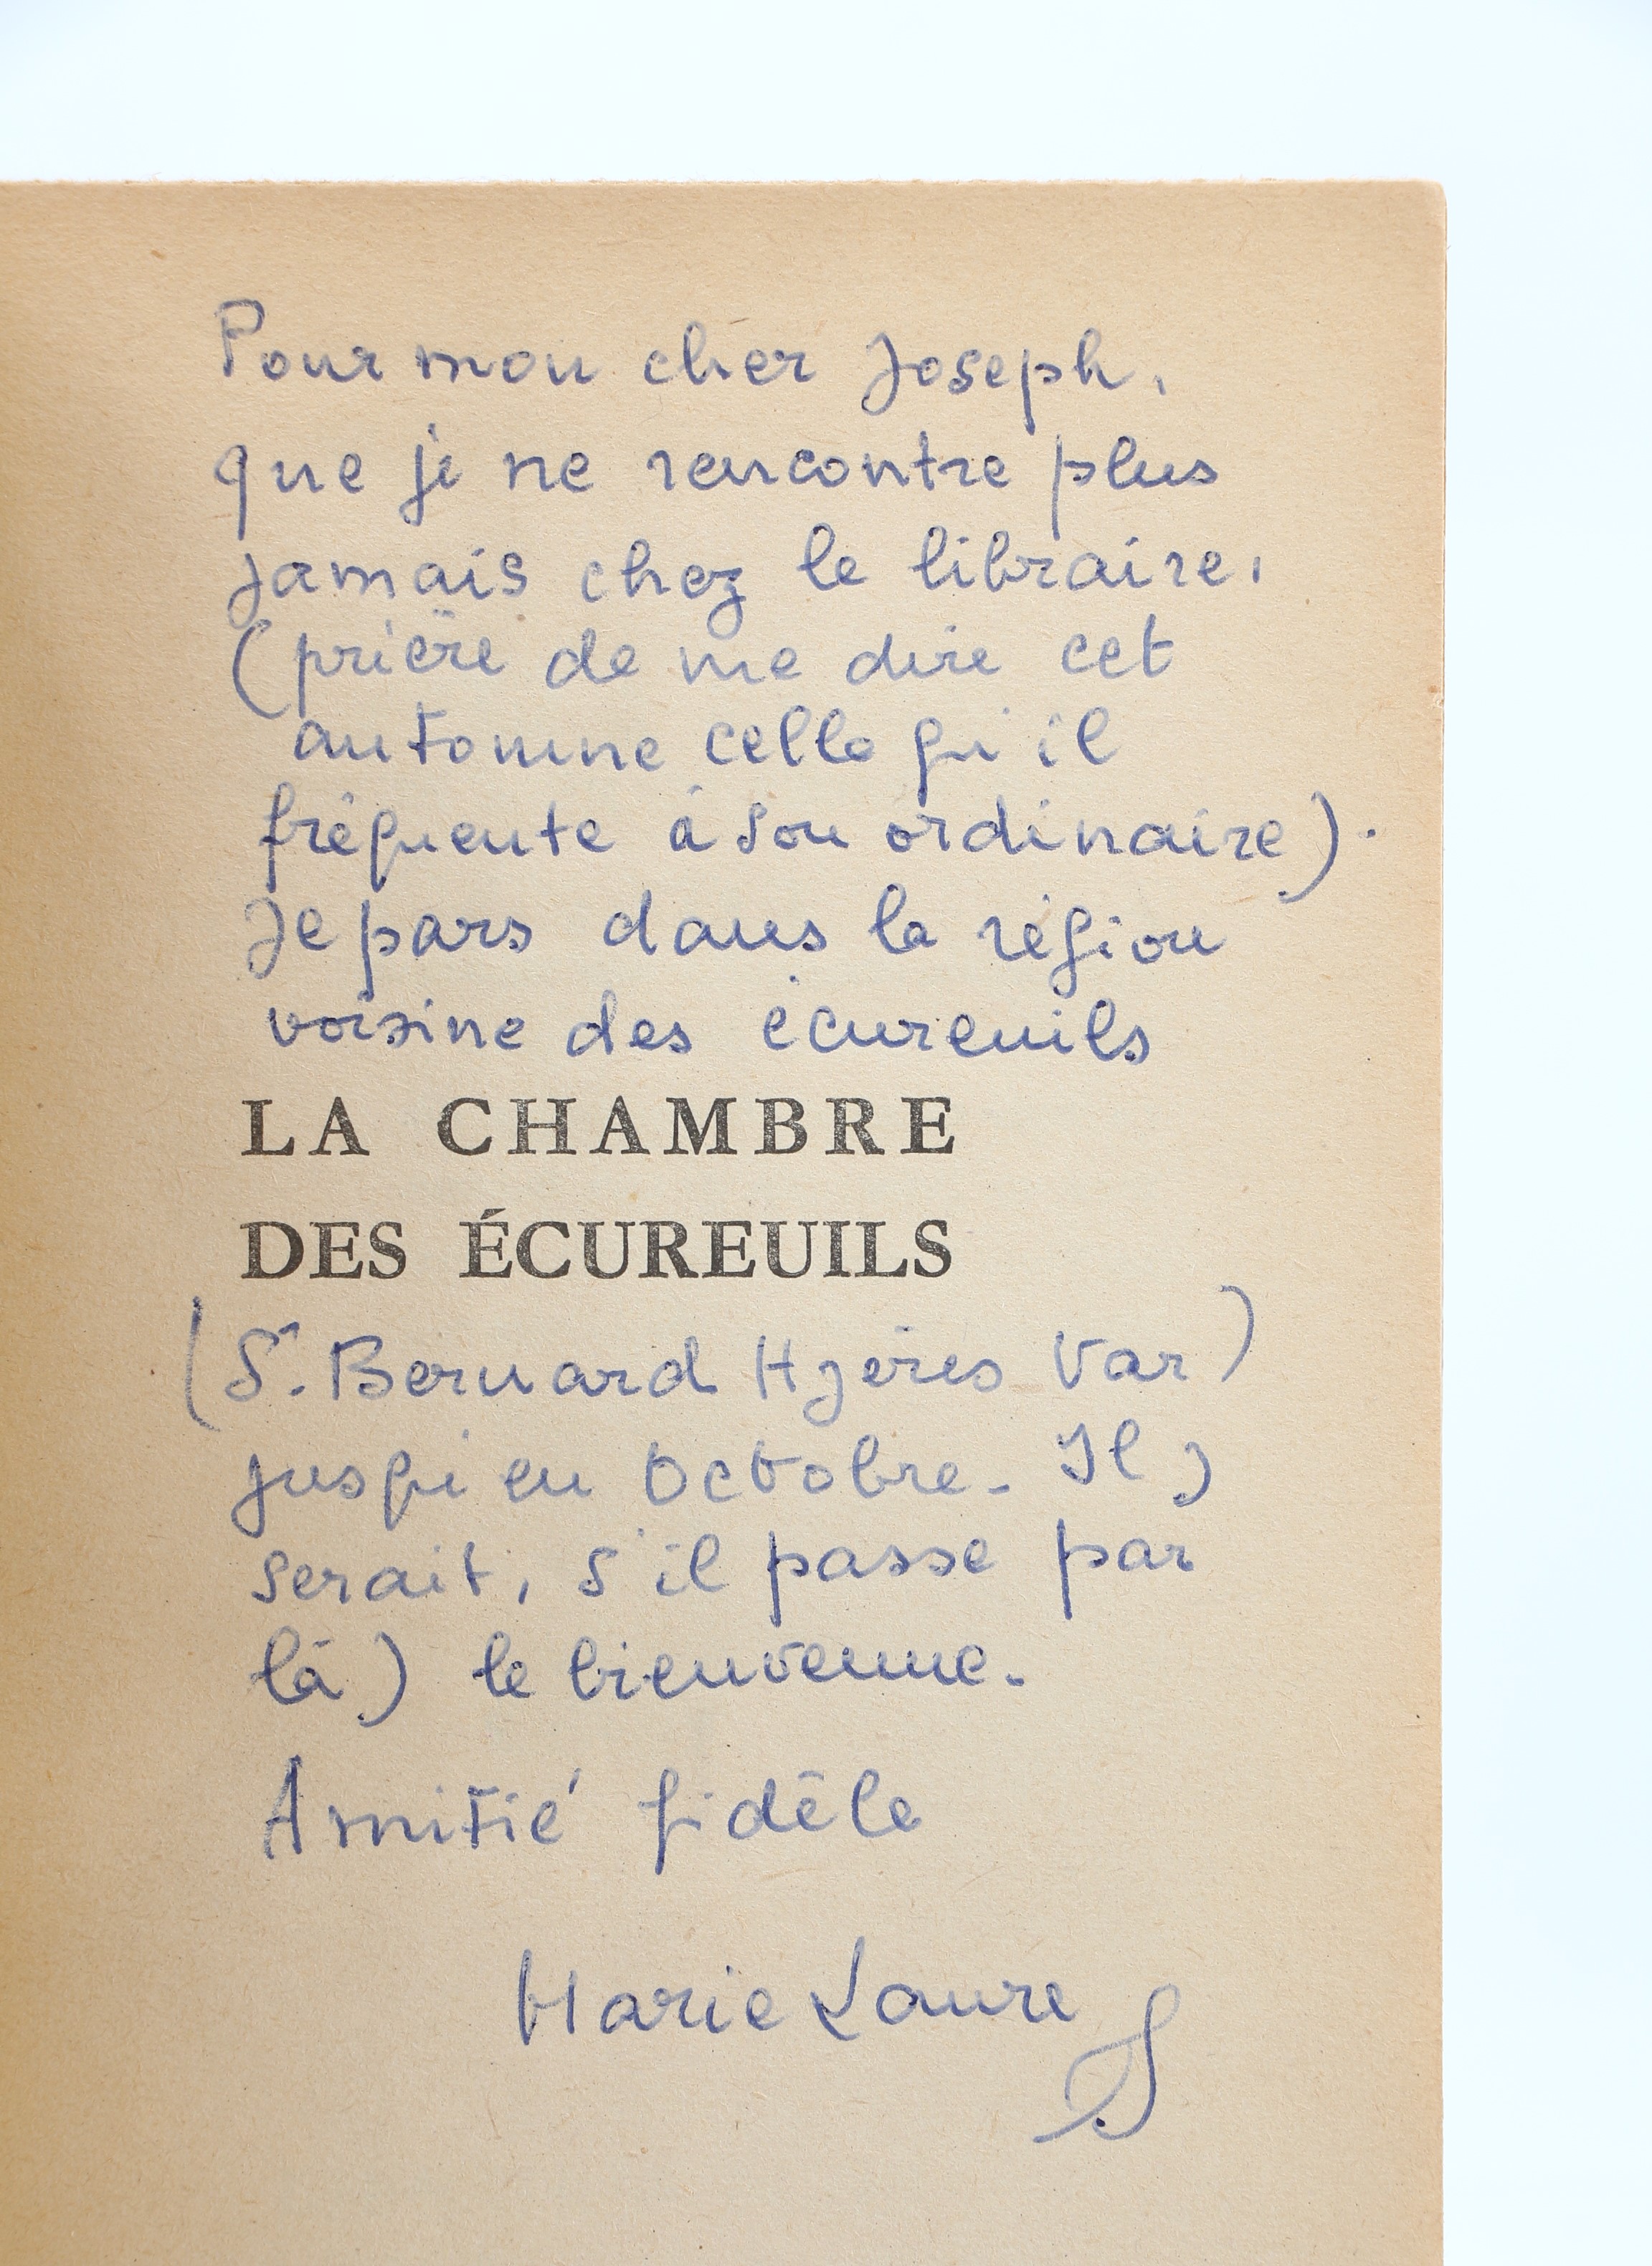 Pour mon cher Joseph,
que je ne rencontre plus
jamais chez le libraire,
(prière de me dire cet
automne celle qu'il
fréquente à son ordinaire).
Je pars dans la région
voisine des écureuils
LA CHAMBRE
DES ÉCUREUILS
(St. Bernard Hyeres Var)
jusqu'en Octobre. Il y
serait, s'il passe par
là) le bienvenue.
Amitié fidèle
Marie Laure